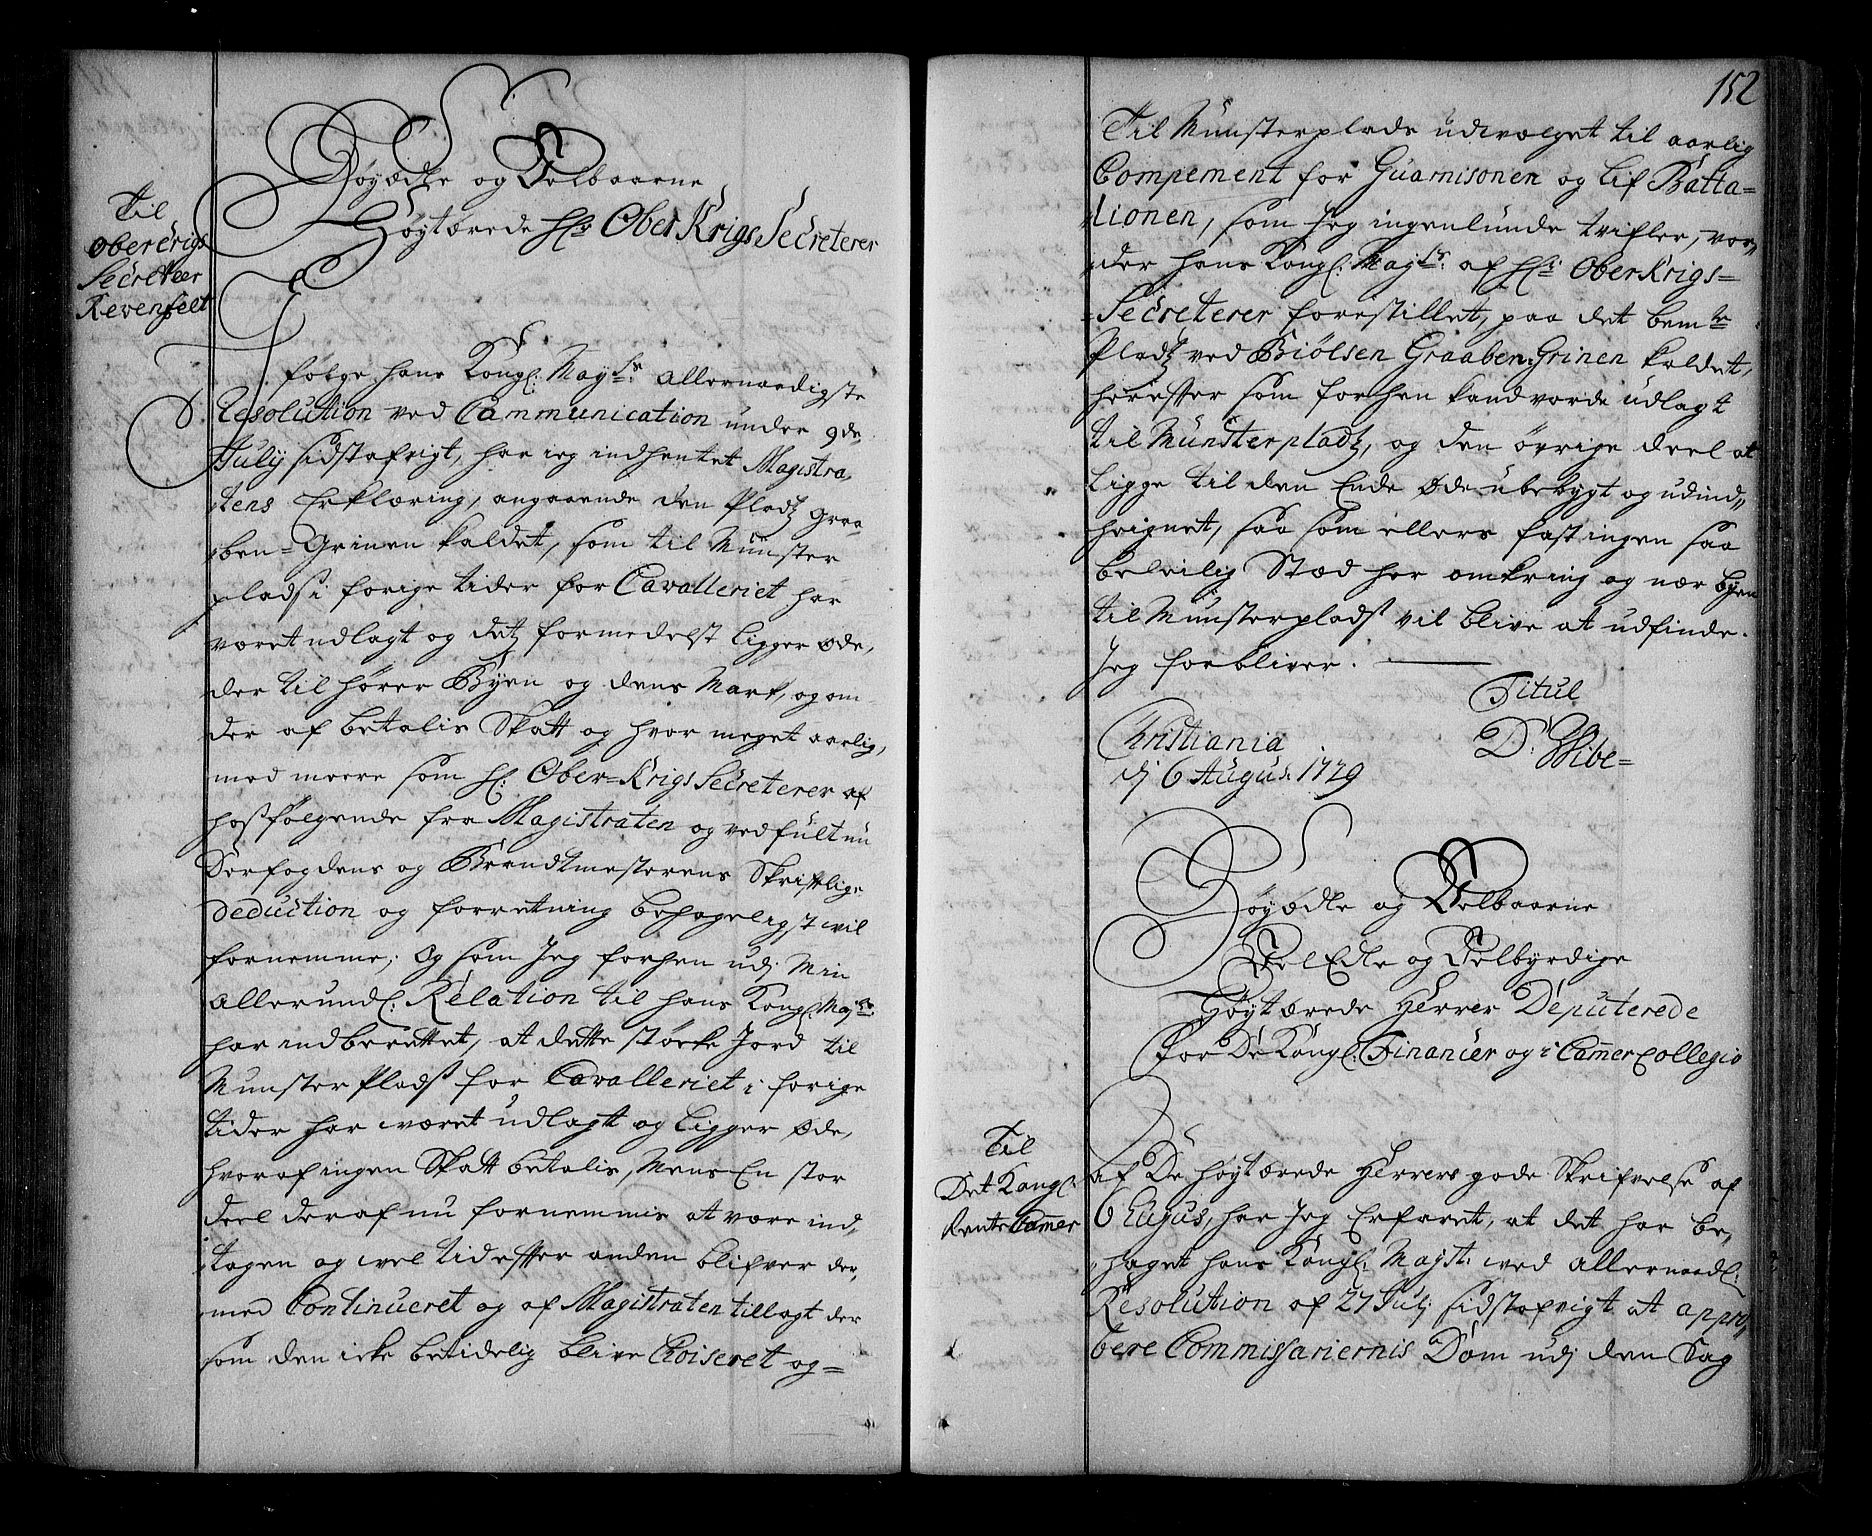 Til
Ober Crigs
Secreteer
Revenfelt
Høyædle og Velbaarne
Høytærede Hr Ober Krigs Secreterer
J følge hans Kongl: Mayts: allernaadigste
Resolution ved Cammunication under 9de
July sidstafvigt, har ieg indhentet Magistra,
tens Erklæring, angaaende den Pladtz Graa
ben=Grinen kaldet, som til Munster
plads i forige tider for Cavalleriet har
været udlagt og det formedelst ligger øde,
der til hører Byen og dens Mark, og om
der af betalis Skatt og hvor meget aarlig,
med meere som Hr: Ober=Krigs Secreterer af
hosfølgende fra Magistraten og ved fult nu
Borfogdens og Brendtmesterens Skriftlige
deduction og forretning behageligst wil
fornemme; Og som Jeg forhen udj Min
Allerundl: Relation til hans Kongl Mayts:
har indberettet, at dette støcke Jord til
Munster Plads for Cavalleriet i forige
tider har været udlagt og ligger øde,
hvoraf ingen Skatt betalis, Mens En stor
deel deraf nu fornemmis at være ind,
tagen og vel tid efter anden blifver der,
med Continueret og af Magistraten tillagt der
som den icke betidelig blive Choiseret og=
152
Til Munsterplads udvalget til aarlig
Compement for Guarnisonen og lif Batta=
lionen, som Jeg ingenlunde tvifler, vor,
der hans Kongl: Mayts: af Hr: Ober Krigs=
=Secreterer forestillet, paa det bemte
Pladtz ved Biølsen Graaben=Grinen kaldet,
herefter som forhen kand vorde udlagt
til Munsterpladtz, og den øvrige deel at
ligge til den Ende øde ubebygt og udind,,
heignet, saa som ellers fast ingen saa
beleilig Stæd her omkring og nær byen
til Munsterplads vil blive at udfinde.
Jeg forbliver.
Titul
Christiania
D. Wibe=
dj 6 Augus: 1729
Høyædle og Velbaarne
Vel Edle og Velbyrdige
Høyt ærede Herrer Deputerede
for De Kongl: Financier og i Camer Collegio
Til
Det Kongl
Rente Camer
af De høyt ærede Herrers gode Skrifvelse af
6 hujus, har Jeg Erfaret, at det har be,
haget hans Kongl: Mayst: ved allernaadl:
Resolution af 27 Julj sidstafvigt at appro,,
bere Commissariernis Dom udj den Sag